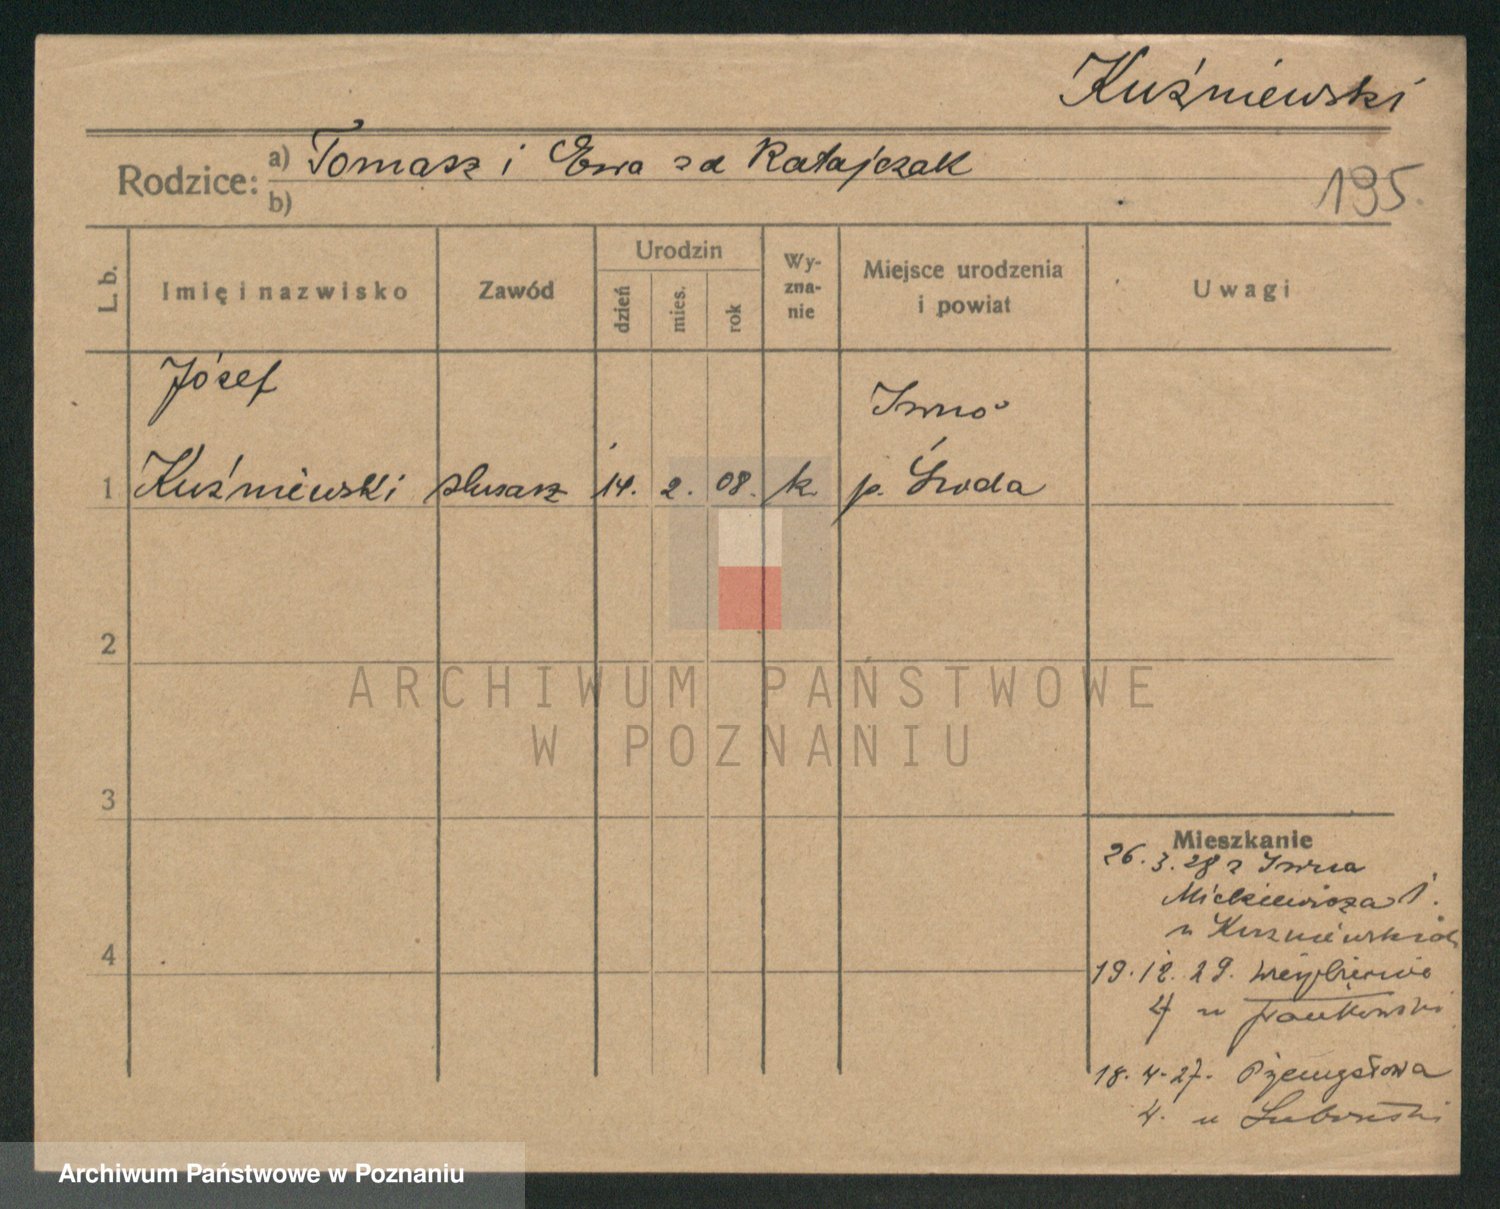 Kuźniewski
Rodzice: a) Tomasz i Ewa zd Ratajczak
b)
195.
L. b.
Imię i nazwisko
Zawód
Urodzin
dzień
mies.
rok
Wy-
zna-
nie
Miejsce urodzenia
i powiat
Uwagi
Józef
Iwno
1 Kuźniewski ślusarz 14. 2. 08. k. p. Środa
2
ARCHIWUM PAŃSTWOWE
W POZNANIU
3
Mieszkanie
26.3.28 z Iwna
Mickiewicza 1.
u
4
19.12.29.
u
18.4.27.
4. u
Archiwum Państwowe w Poznaniu